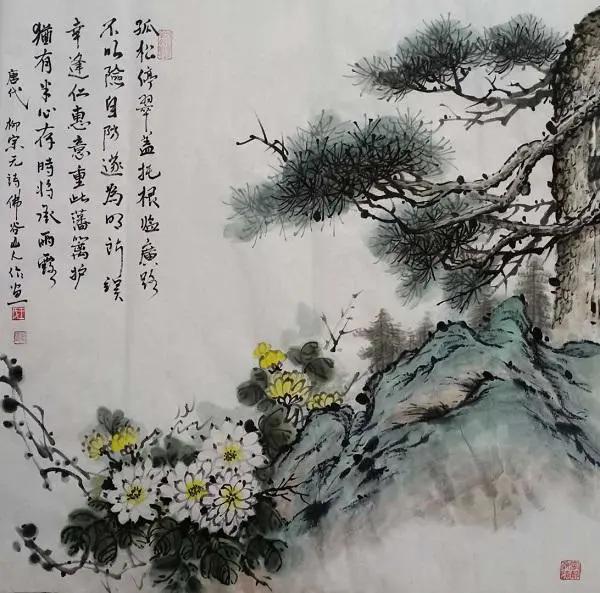 孤松停翠盖托根临廣路
不以險自防遂為明所誤
幸逢仁惠意重此藩籬护
猶有半心存時將承雨露
唐代 柳宗元詩佛谷山人作画